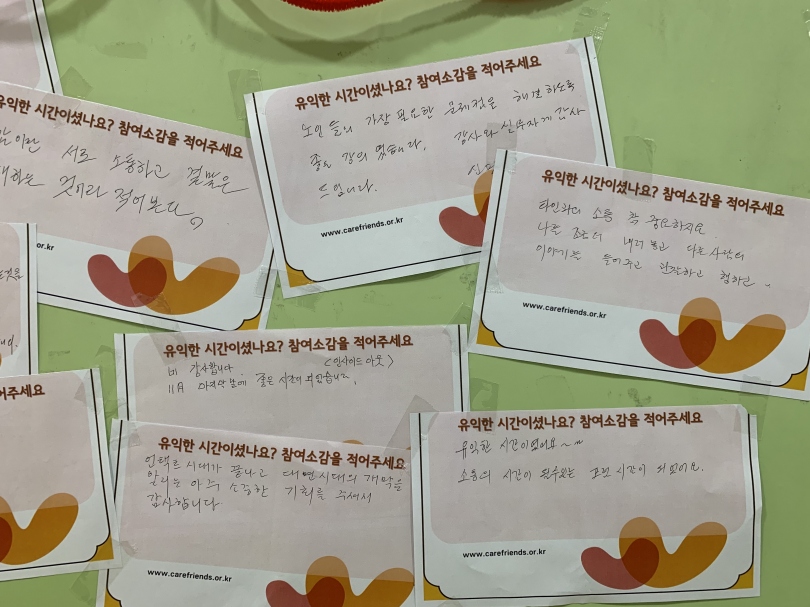 유익한 시간이셨나요? 참여소감을 적어주세요
서로 소통하고 걸맞은
것이라 적어본다
or.kr
유익한 시간이셨나요? 참여소감을 적어주세요
노인들의 가장 필요한 문제점을 해결하도록
좋은 강의 였습니다. 강사와 실무자게 감사
드립니다.
www.carefriends.or.kr
유익한 시간이셨나요? 참여소감을 적어주세요
타인과의 소통 꼭 중요하지요
나를 조금더 내려놓고 다른사람의
이야기를 들어주고 관찰하고
www.carefriends.or.kr
유익한 시간이셨나요? 참여소감을 적어주세요
감사합니다. <인사이드 아웃>
11月 마지막날에 좋은 시간이 되었습니다.
어주세요
유익한 시간이셨나요? 참여소감을 적어주세요
언택트 시대가 끝나고 대면시대의 개막을
알리는 아주 소중한 기회를 주셔서
감사합니다
www.carefriends.or.kr
유익한 시간이셨나요? 참여소감을 적어주세요
유익한 시간이었어요~
소통의 시간이 될수있는 시간이 되었어요.
www.carefriends.or.kr